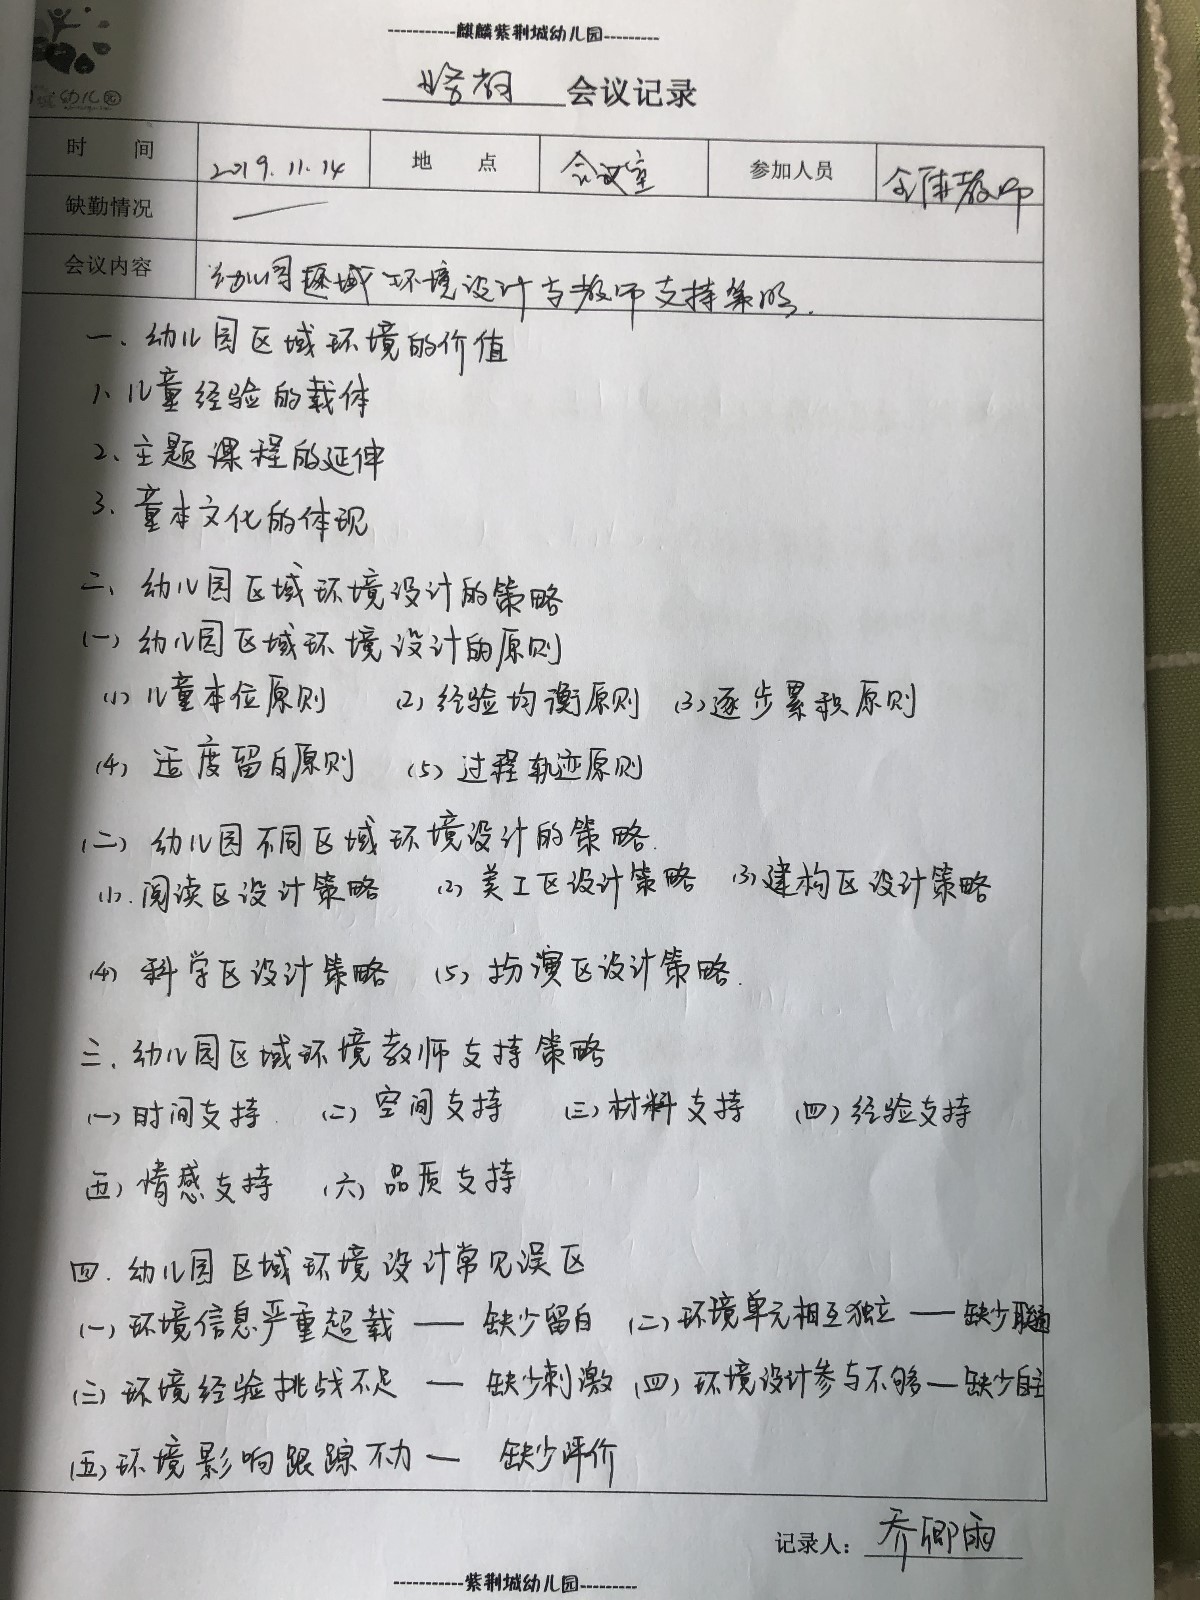 -----------麒麟紫荆城幼儿园---------
会议记录
幼儿园
时 间 2019.11.14 地 点 会议室 参加人员 全体教师
缺勤情况 —
会议内容 幼儿园区域环境设计与教师支持策略.
一、幼儿园区域环境的价值
1、儿童经验的载体
2、主题课程的延伸
3、童本文化的体现
二、幼儿园区域环境设计的策略
(一)幼儿园区域环境设计的原则
(1)儿童本位原则 (2)经验均衡原则 (3)逐步累积原则
(4)适度留白原则 (5)过程轨迹原则
(二)幼儿园不同区域环境设计的策略.
(1).阅读区设计策略 (2)美工区设计策略 (3)建构区设计策略
(4)科学区设计策略 (5)扮演区设计策略.
三.幼儿园区域环境教师支持策略
(一)时间支持. (二)空间支持 (三)材料支持 (四)经验支持
五)情感支持 (六)品质支持
四.幼儿园区域环境设计常见误区
(一)环境信息严重超载——缺少留白 (二)环境单元相互独立——缺少
(三)环境经验挑战不足——缺少刺激 (四)环境设计参与不够—缺少自主
(五)环境影响跟踪不力— 缺少评价
记录人：乔卿雨
-----------紫荆城幼儿园---------